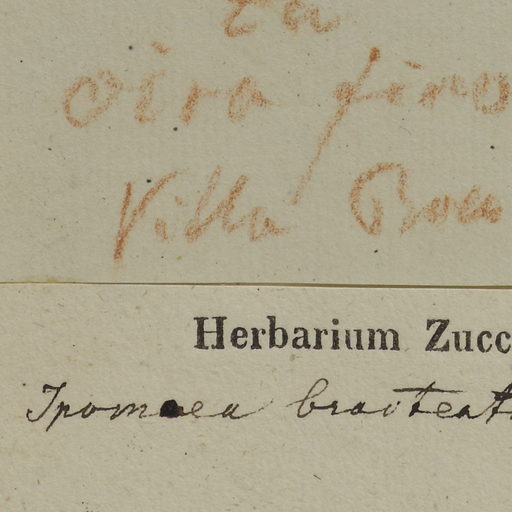 oira fino
Villa
Herbarium Zucc
Ipomoea bracteat